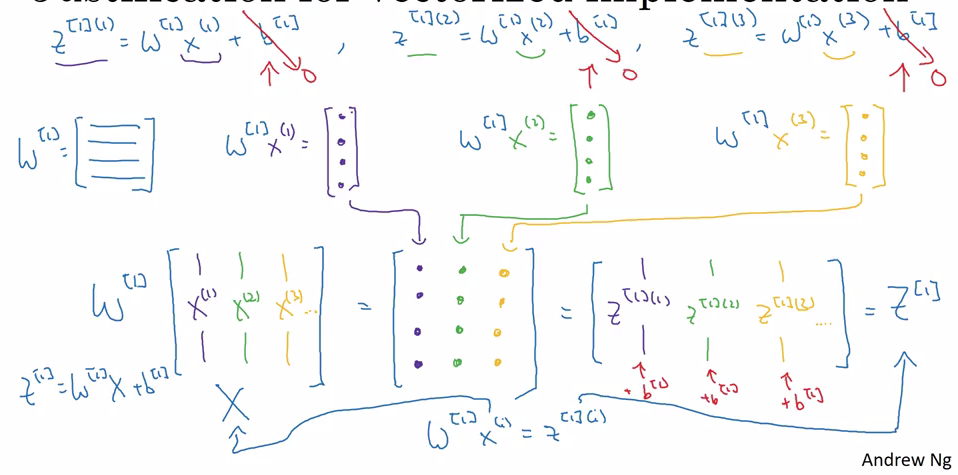 Justification for vectorized implementation
z^[1](1) = W^[1] x^(1) + b^[1] , z^[1](2) = W^[1] x^(2) + b^[1] , z^[1](3) = W^[1] x^(3) + b^[1]
0 0 0
W^[1] = [ ] W^[1] x^(1) = [ ] W^[1] x^(2) = [ ] W^[1] x^(3) = [ ]
W^[1] [ x^(1) x^(2) x^(3) ... ] = [ ] = [ z^[1](1) z^[1](2) z^[1](3) .... ] = Z^[1]
z^[1] = W^[1] X + b^[1] X +b^[1] +b^[1] +b^[1]
W^[1] x^(i) = z^[1](i)
Andrew Ng